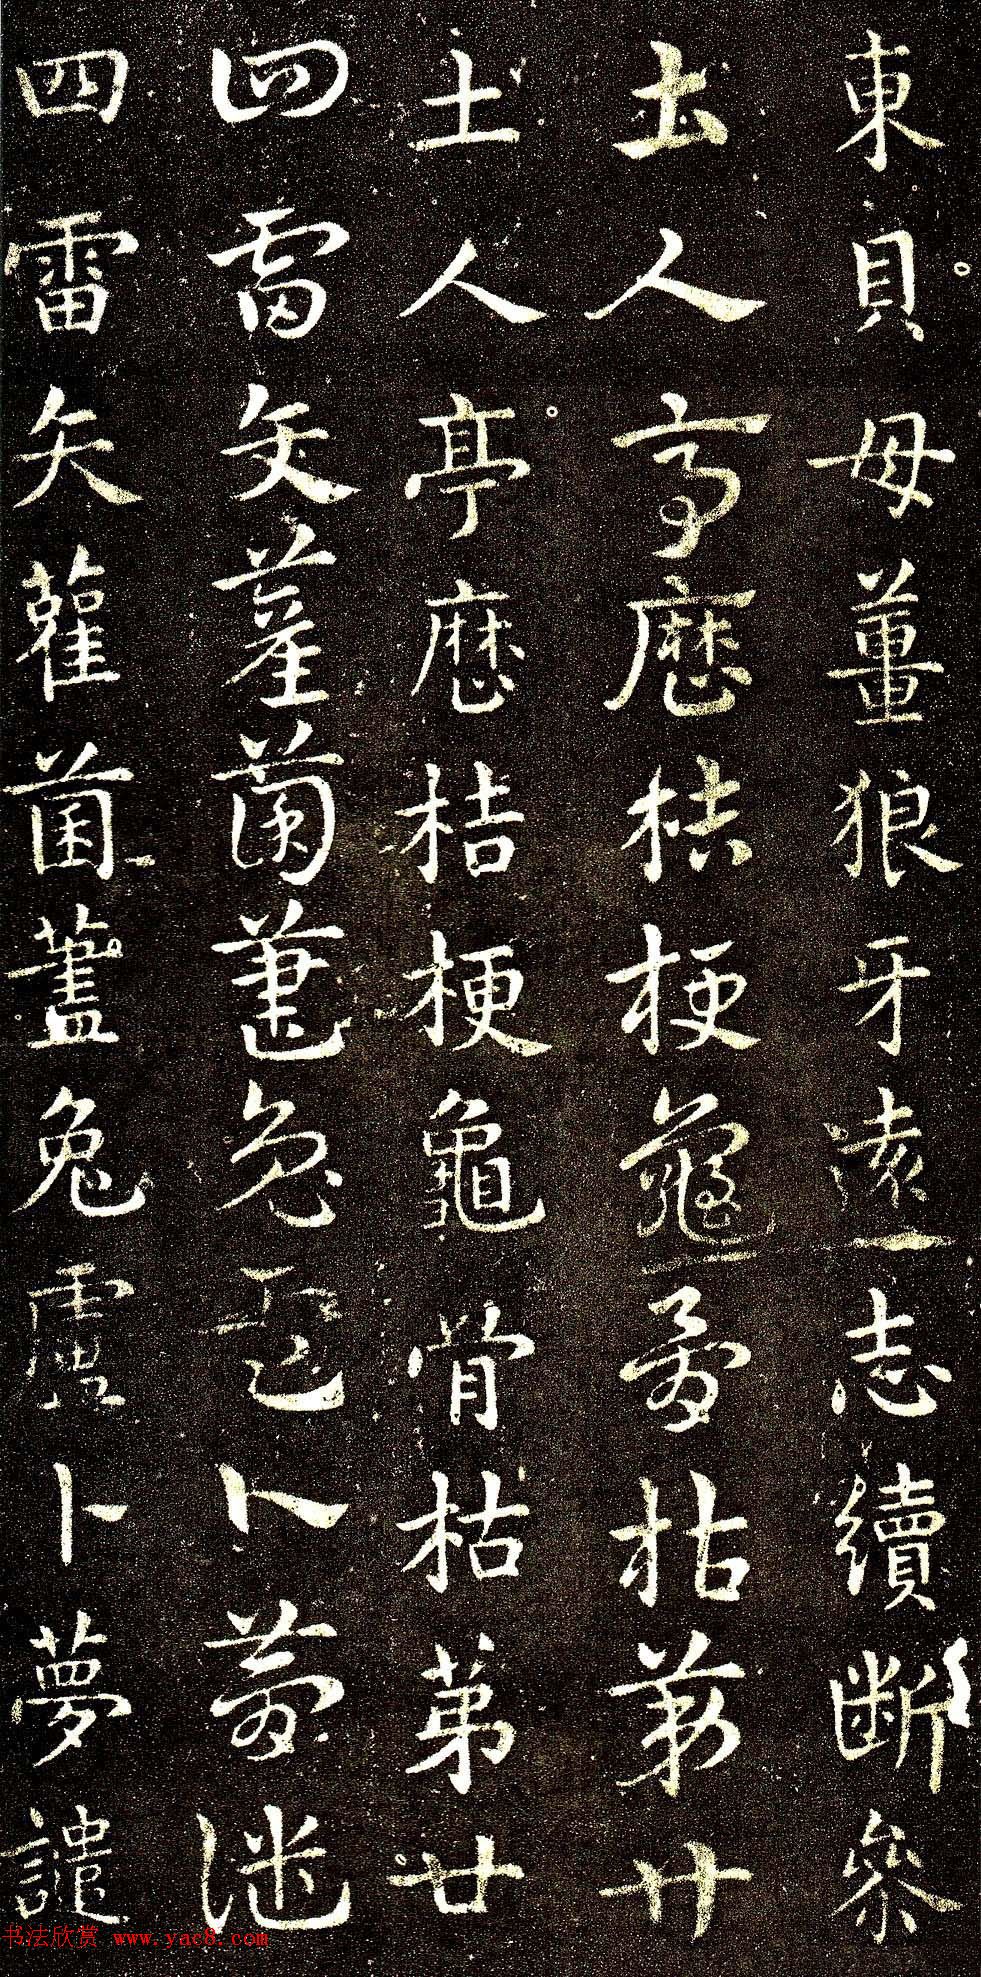 東貝母薑狼牙遠志續斷參
土人亭歷桔梗龜骨枯第廿
土人亭歷桔梗龜骨枯第廿
四雷矢雚菌藎兔盧卜夢譴
四雷矢雚菌藎兔盧卜夢譴
书法欣赏 www.yac8.com